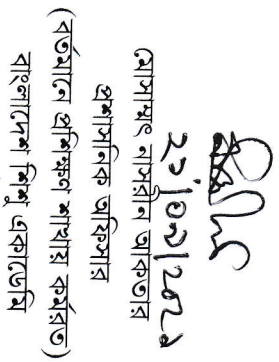 ২১/০১/২০২১
মোসাম্মৎ নাসরীন আকতার
প্রশাসনিক অফিসার
(বর্তমানে প্রশিক্ষণ শাখায় কর্মরত)
বাংলাদেশ শিশু একাডেমি